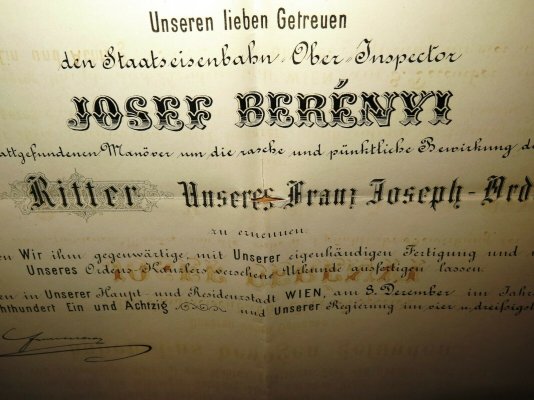 Unseren lieben Getreuen
den Staatseisenbahn-Ober-Inspector
JOSEF BERÉNYI
attgefundenen Manöver um die rasche und pünktliche Bewirkung d
Ritter Unseres Franz Joseph-Ord
zu ernennen.
en Wir ihm gegenwärtige, mit Unserer eigenhändigen Fertigung und
Unseres Ordens Kanzlers versehene Urkunde ausfertigen lassen.
en in Unserer Haupt und Residenzstadt WIEN, am 8. Dezember im Jahre
hthundert Ein und Achtzig und Unserer Regierung im vier u. dreißigst